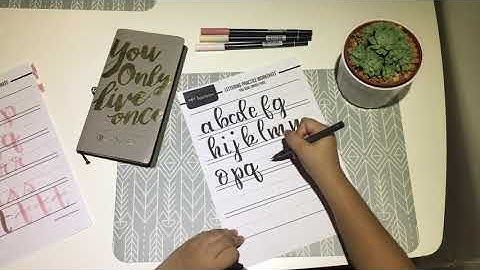 You
Only
live
once
LETTERING PRACTICE WORKSHEET
abcdefg
hijklmn
opq